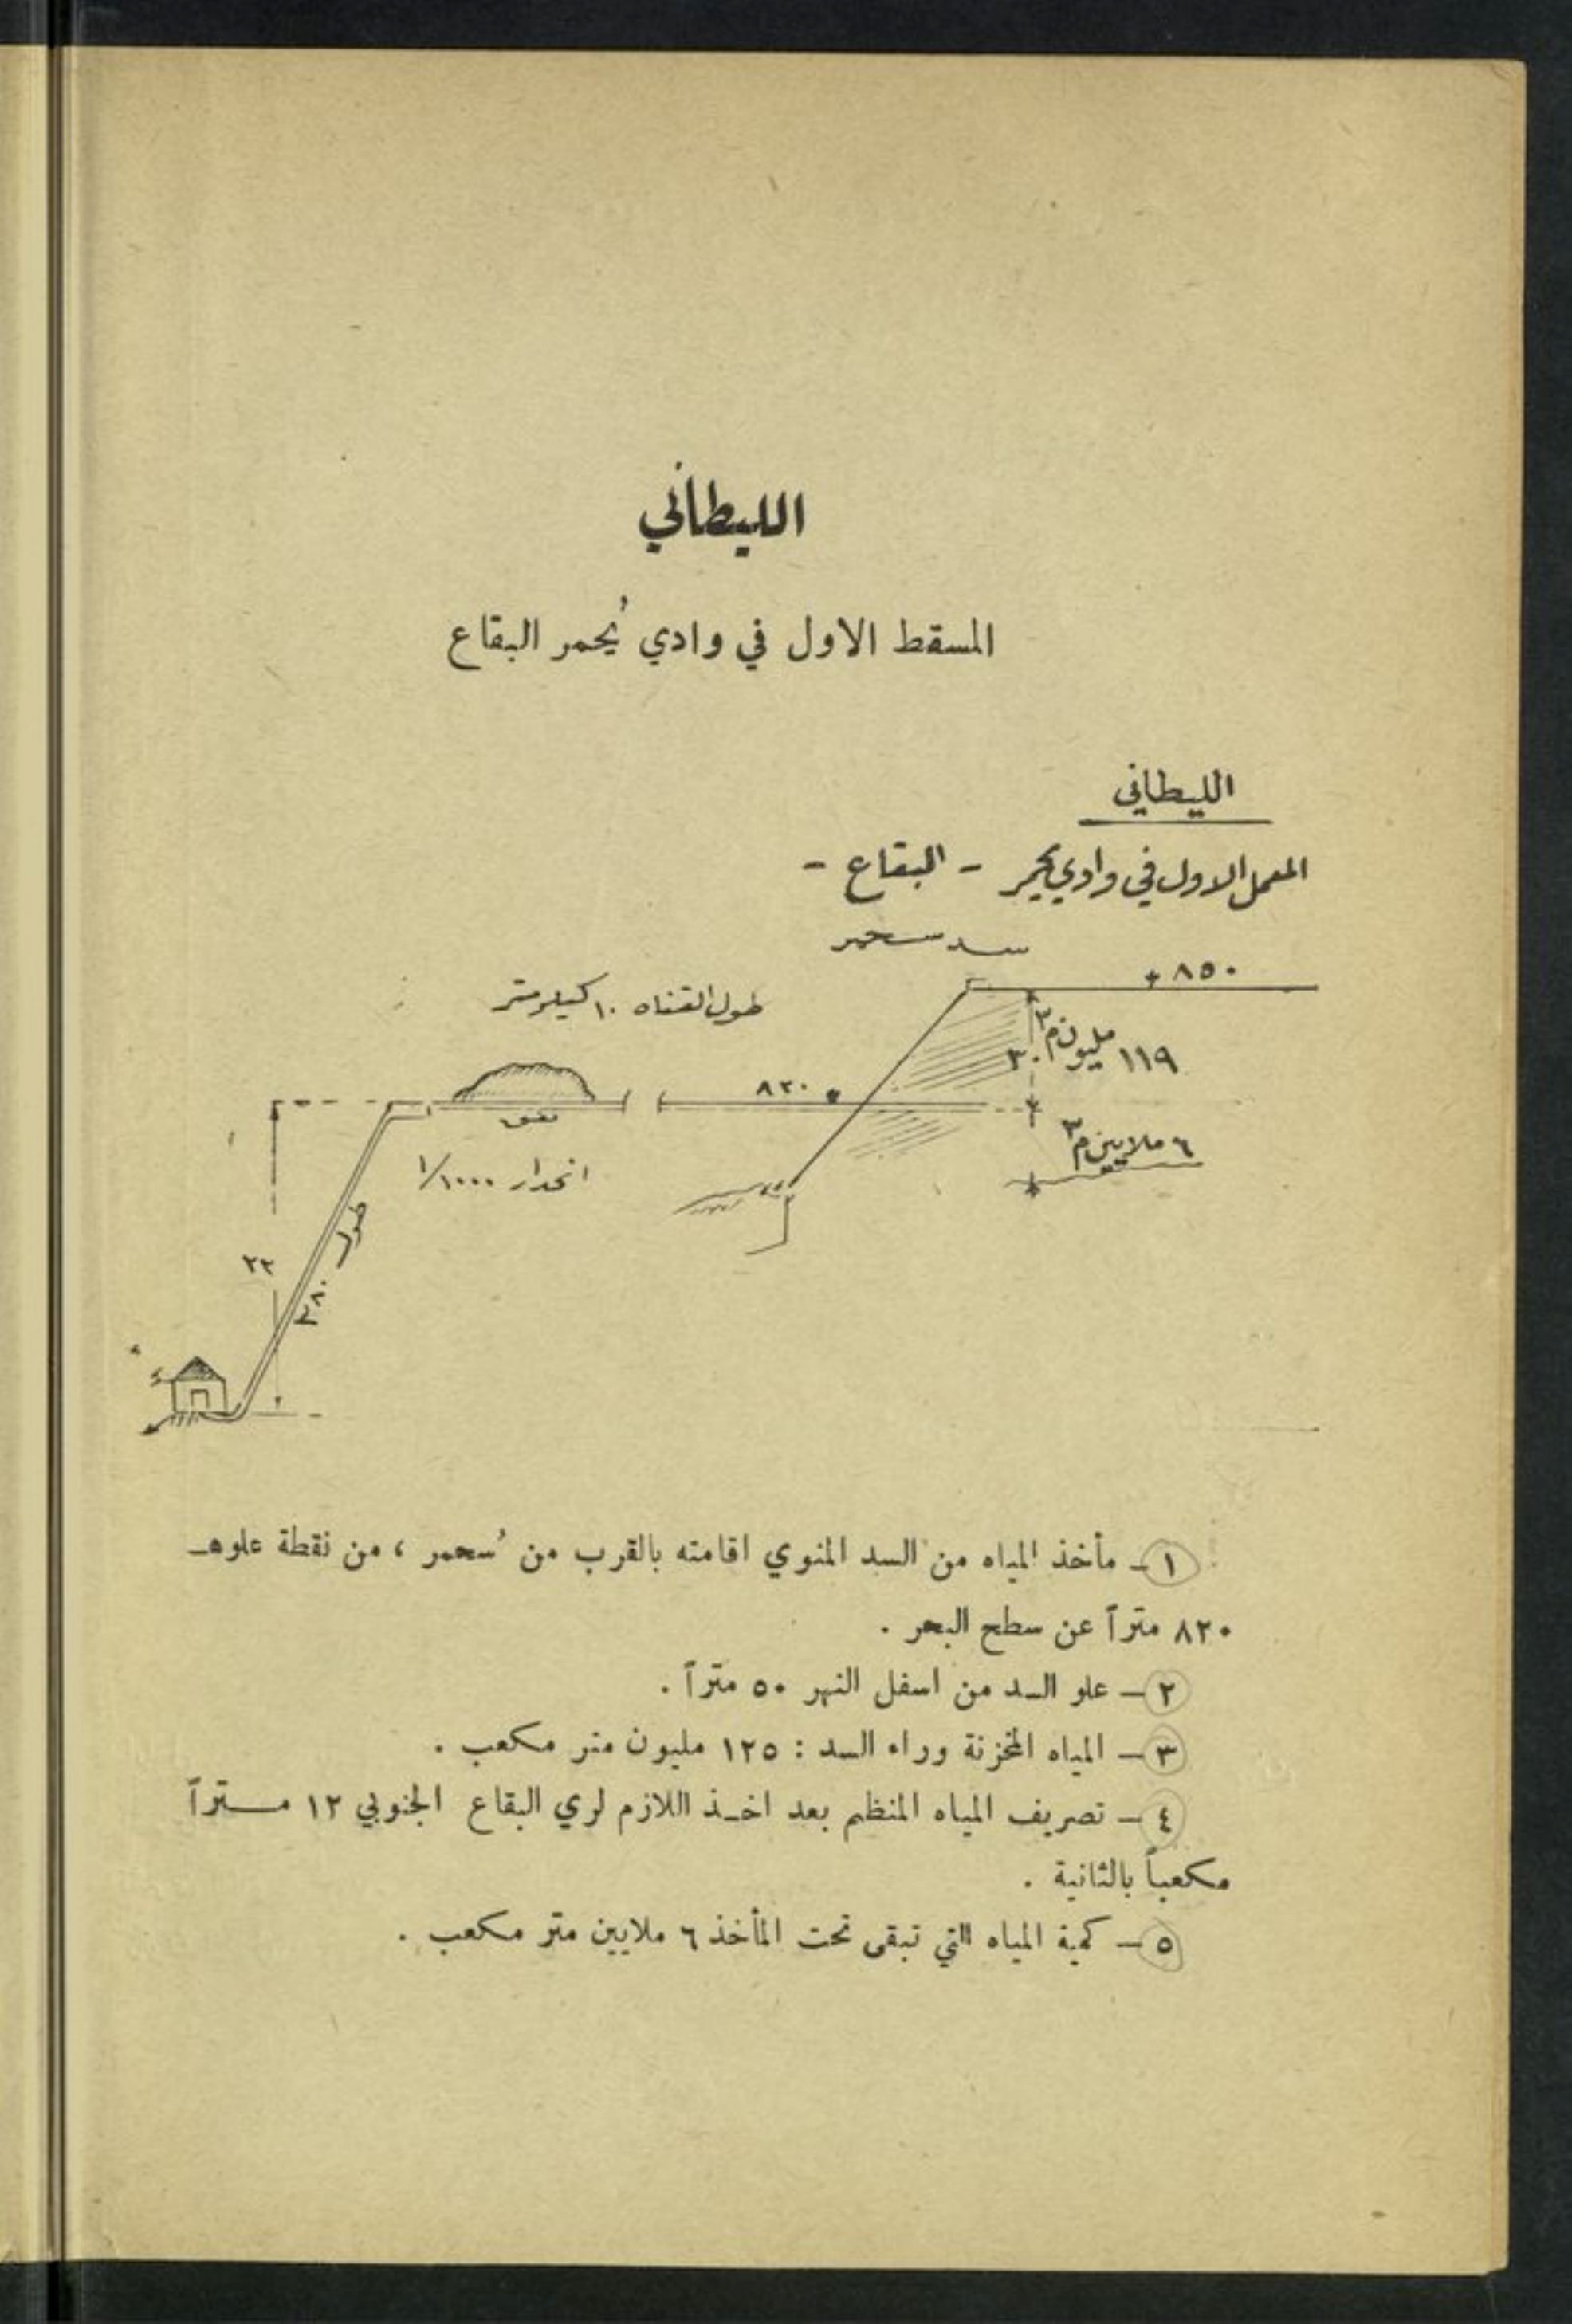 الليطاني
المسقط الاول في وادي يُحمر البقاع
الليطاني
المعمل الاول في وادي يحمر - البقاع -
سد سحمر
+ ٨٥٠
طول القناه ١٠ كيلومتر
١١٩ مليون م٣
٣٠
٨٢٠
نفق
٦ ملايين م٣
انحدار ١/١٠٠٠
طول
١ـ مأخذ المياه من السد المنوي اقامته بالقرب من سُحمر ، من نقطة علوهـ
٨٢٠ متراً عن سطح البحر .
٢ـ علو السد من اسفل النهر ٥٠ متراً .
٣ـ المياه المخزنة وراء السد : ١٢٥ مليون متر مكعب .
٤ـ تصريف المياه المنظم بعد اخـذ اللازم لري البقاع الجنوبي ١٢ مـتراً
مكعباً بالثانية .
٥ـ كمية المياه التي تبقى تحت المأخذ ٦ ملايين متر مكعب .